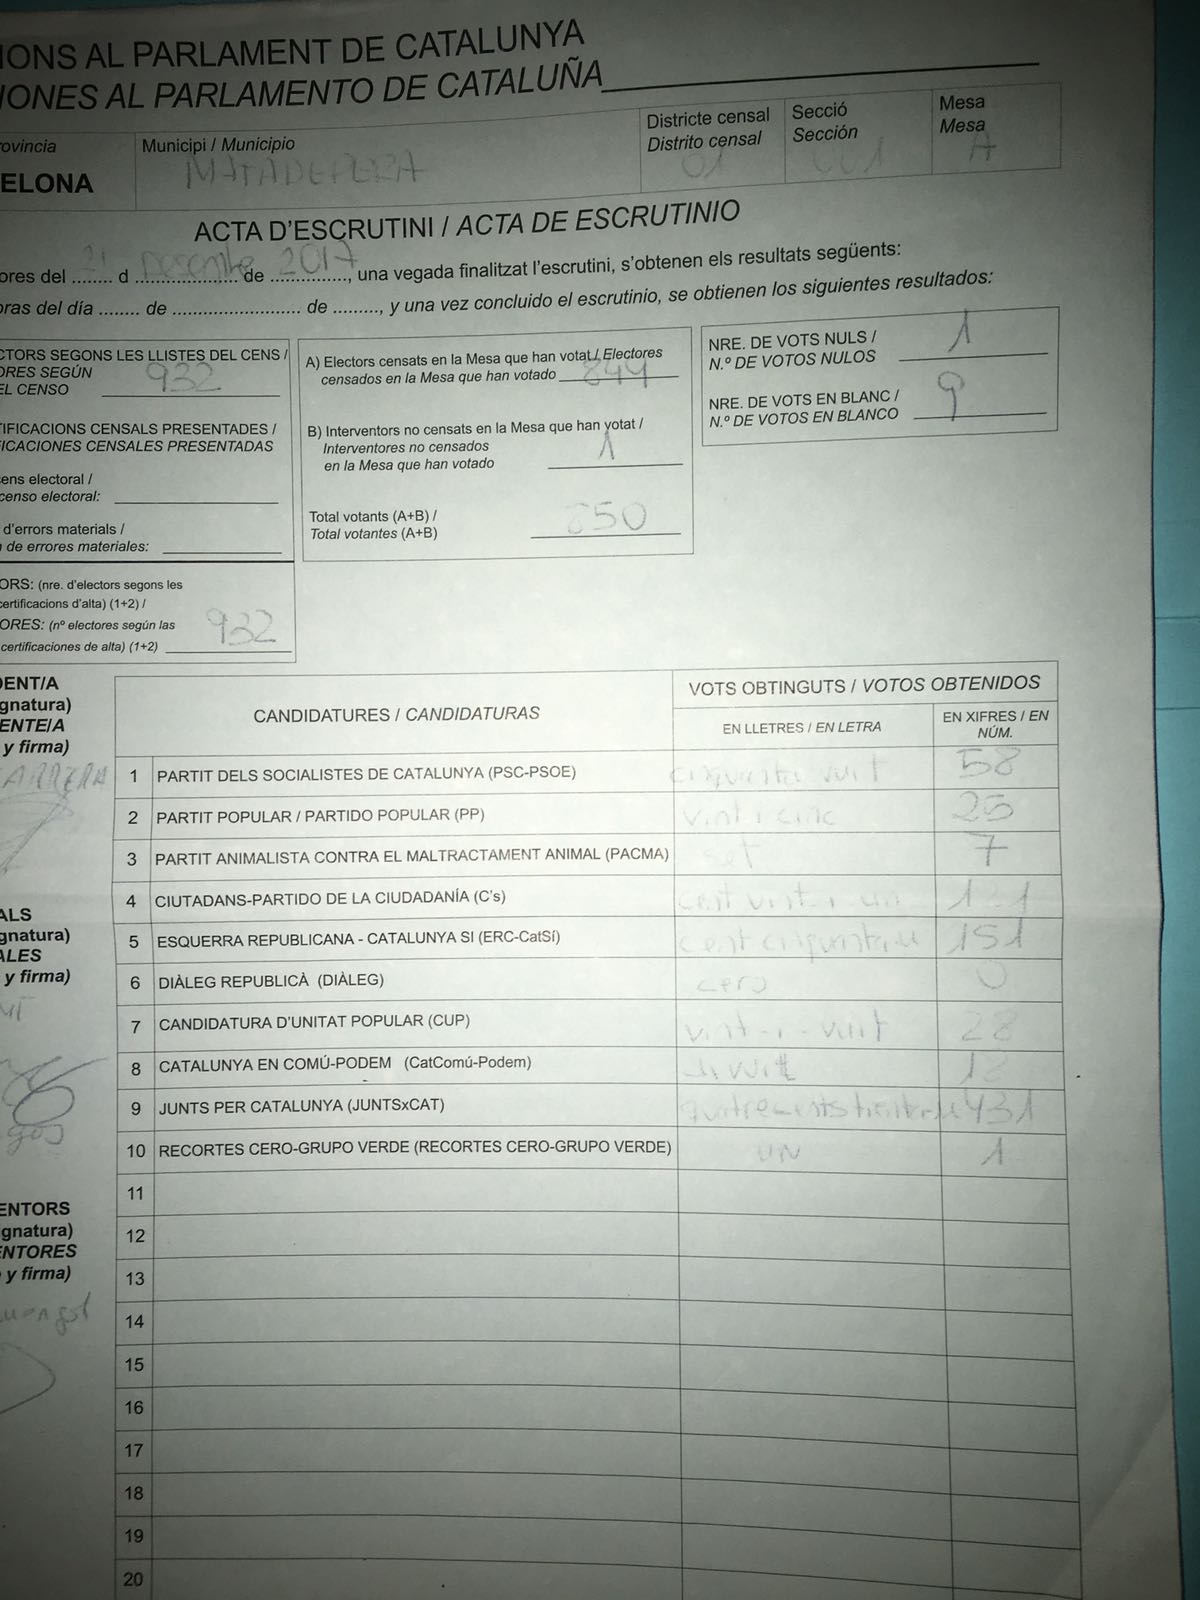 IONS AL PARLAMENT DE CATALUNYA
IONES AL PARLAMENTO DE CATALUÑA
rovincia
ELONA
Municipi / Município
MATADEPERA
Districte censal
Distrito censal
01
Secció
Sección
001
Mesa
Mesa
A
ACTA D'ESCRUTINI / ACTA DE ESCRUTINIO
ores del 21 d Desembre de 2017, una vegada finalitzat l'escrutini, s'obtenen els resultats següents:
oras del día ........ de ........................ de ........., y una vez concluido el escrutinio, se obtienen los siguientes resultados:
CTORS SEGONS LES LLISTES DEL CENS /
ORES SEGÚN
EL CENSO 932
TIFICACIONS CENSALS PRESENTADES /
FICACIONES CENSALES PRESENTADAS
ens electoral /
censo electoral:
d'errors materials /
de errores materiales:
ORS: (nre. d'electors segons les
certificacions d'alta) (1+2) /
ORES: (nº electores según las
certificaciones de alta) (1+2) 932
A) Electors censats en la Mesa que han votat / Electores
censados en la Mesa que han votado 849
B) Interventors no censats en la Mesa que han votat /
Interventores no censados
en la Mesa que han votado 1
Total votants (A+B) /
Total votantes (A+B) 850
NRE. DE VOTS NULS /
N.º DE VOTOS NULOS 1
NRE. DE VOTS EN BLANC /
N.º DE VOTOS EN BLANCO 9
DENT/A
gnatura)
ENTE/A
y firma)
CARRERA
ALS
gnatura)
ALES
y firma)
ENTORS
gnatura)
ENTORES
y firma)
CANDIDATURES / CANDIDATURAS
VOTS OBTINGUTS / VOTOS OBTENIDOS
EN LLETRES / EN LETRA
EN XIFRES / EN
NÚM.
1 PARTIT DELS SOCIALISTES DE CATALUNYA (PSC-PSOE) cinquanta vuit 58
2 PARTIT POPULAR / PARTIDO POPULAR (PP) vint i cinc 25
3 PARTIT ANIMALISTA CONTRA EL MALTRACTAMENT ANIMAL (PACMA) set 7
4 CIUTADANS-PARTIDO DE LA CIUDADANÍA (C's) cent vint-i-un 121
5 ESQUERRA REPUBLICANA - CATALUNYA SI (ERC-CatSí) cent cinquanta u 151
6 DIÀLEG REPUBLICÀ (DIÀLEG) cero 0
7 CANDIDATURA D'UNITAT POPULAR (CUP) vint-i-vuit 28
8 CATALUNYA EN COMÚ-PODEM (CatComú-Podem) divuit 18
9 JUNTS PER CATALUNYA (JUNTSxCAT) quatrecents trenta u 431
10 RECORTES CERO-GRUPO VERDE (RECORTES CERO-GRUPO VERDE) UN 1
11
12
13
14
15
16
17
18
19
20